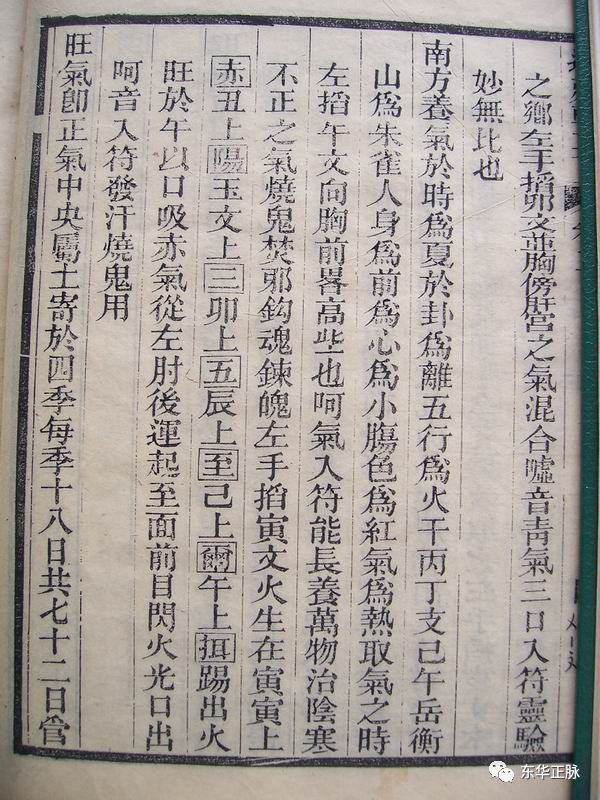 之鄉左手搯卯文並胸傍肝宮之氣混合噓音靑氣三口入符靈驗
妙無比也
南方養氣於時爲夏於卦爲離五行爲火干丙丁支己午岳衡
山爲朱雀人身爲前爲心爲小膓色爲紅氣爲熱取氣之時
左搯午文向胸前畧高些也呵氣入符能長養萬物治陰寒
不正之氣燒鬼焚邪鈎魂鍊魄左手搯寅文火生在寅寅上
赤丑上陽玉文上三卯上五辰上至己上爾午上挕踢出火
旺於午以口吸赤氣從左肘後運起至面前目閃火光口出
呵音入符發汗燒鬼用
旺氣卽正氣中央屬土寄於四季每季十八日共七十二日管
东华正脉